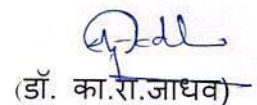 (डॉ. का.रा.जाधव)